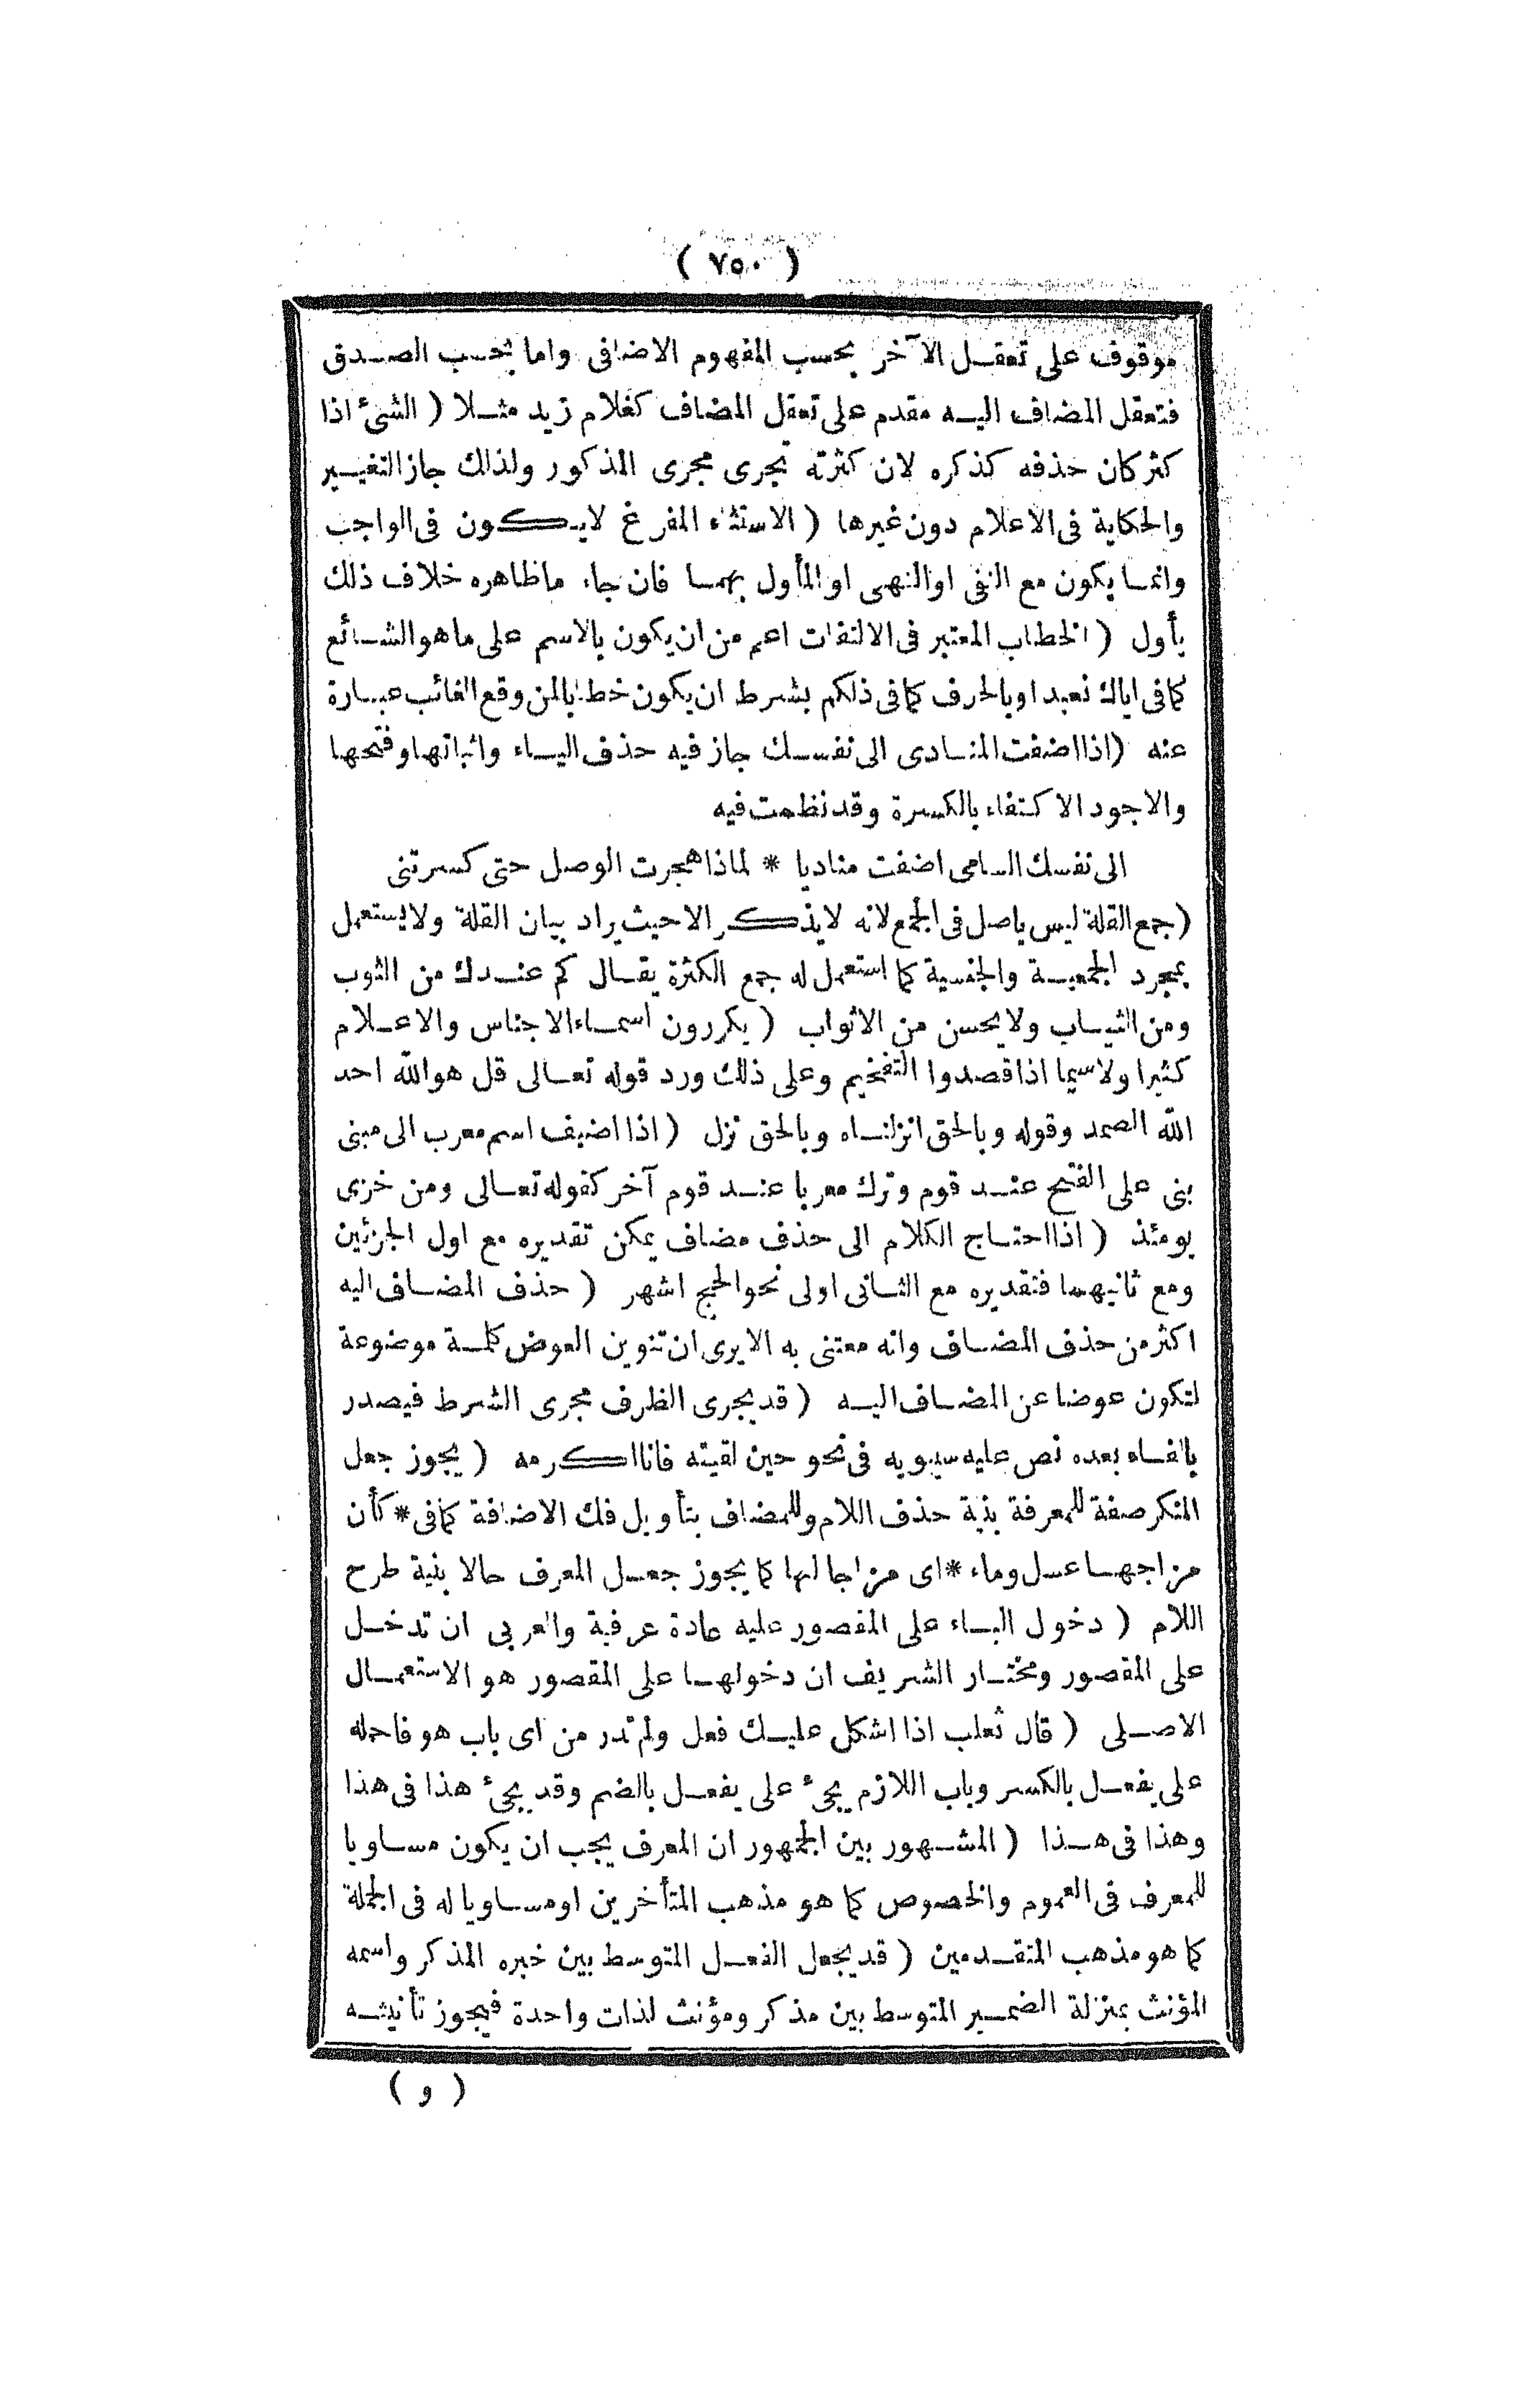 ( ٧٥٠ )
موقوف على تعقل الآخر بحسب المفهوم الاضافى واما بحسب الصدق
فتعقل المضاف اليه مقدم على تعقل المضاف كغلام زيد مثلا ( الشئ اذا
كثر كان حذفه كذكره لان كثرته تجرى مجرى المذكور ولذلك جاز التغيير
والحكاية فى الاعلام دون غيرها ( الاستثناء المفرغ لايكون فى الواجب
وانما يكون مع النفى او النهى او المأول بهما فان جاء ماظاهره خلاف ذلك
يأول ( الخطاب المعتبر فى الالتفات اعم من ان يكون بالاسم على ماهو الشائع
كما فى اياك نعبد او بالحرف كما فى ذلكم بشرط ان يكون خطابا لمن وقع الغائب عبارة
عنه ( اذا اضفت المنادى الى نفسك جاز فيه حذف الياء واثباتها وفتحها
والاجود الاكتفاء بالكسرة وقد نظمت فيه
الى نفسك السامى اضفت مناديا * لماذا هجرت الوصل حتى كسرتنى
( جمع القلة ليس باصل فى الجمع لانه لايذكر الا حيث يراد بيان القلة ولا يستعمل
بمجرد الجمعية والجنسية كما استعمل له جمع الكثرة يقال كم عندك من الثوب
ومن الثياب ولا يحسن من الاثواب ( يكررون اسماء الاجناس والاعلام
كثيرا ولاسيما اذا قصدوا التفخيم وعلى ذلك ورد قوله تعالى قل هو الله احد
الله الصمد وقوله وبالحق انزلناه وبالحق نزل ( اذا اضيف اسم معرب الى مبنى
بنى على الفتح عند قوم وترك معربا عند قوم آخر كقوله تعالى ومن خزى
يومئذ ( اذا احتاج الكلام الى حذف مضاف يمكن تقديره مع اول الجزئين
ومع ثانيهما فتقديره مع الثانى اولى نحو الحج اشهر ( حذف المضاف اليه
اكثر من حذف المضاف وانه معتنى به الا يرى ان تنوين العوض كلمة موضوعة
لتكون عوضا عن المضاف اليه ( قد يجرى الظرف مجرى الشرط فيصدر
بالفاء بعده نص عليه سيبويه فى نحو حين لقيته فانا اكرمه ( يجوز جعل
المنكر صفة للمعرفة بنية حذف اللام وللمضاف بتأويل فك الاضافة كما فى * كأن
مزاجها عسل وماء * اى مزاجا لها كما يجوز جعل المعرف حالا بنية طرح
اللام ( دخول الباء على المقصور عليه عادة عرفية والعربى ان تدخل
على المقصور ومختار الشريف ان دخولها على المقصور هو الاستعمال
الاصلى ( قال ثعلب اذا اشكل عليك فعل ولم تدر من اى باب هو فاحمله
على يفعل بالكسر وباب اللازم يجئ على يفعل بالضم وقد يجئ هذا فى هذا
وهذا فى هذا ( المشهور بين الجمهور ان المعرف يجب ان يكون مساويا
للمعرف فى العموم والخصوص كما هو مذهب المتأخرين او مساويا له فى الجملة
كما هو مذهب المتقدمين ( قد يجعل الفعل المتوسط بين خبره المذكر واسمه
المؤنث بمنزلة الضمير المتوسط بين مذكر ومؤنث لذات واحدة فيجوز تأنيثه
( و )